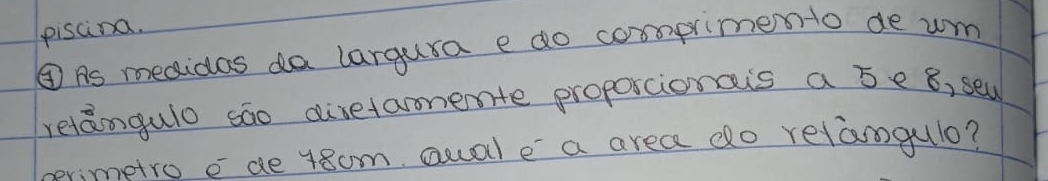 piscina.
④ As medidas da largura e do comprimento de um
retângulo são diretamente proporcionais a 5 e 8, seu
perimetro é de 78cm. Qual é a area do retângulo?